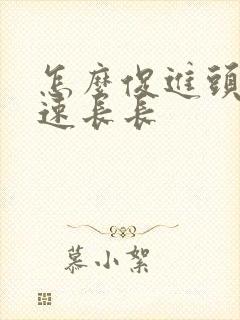 怎麼促進頭
速長長
慕小絮